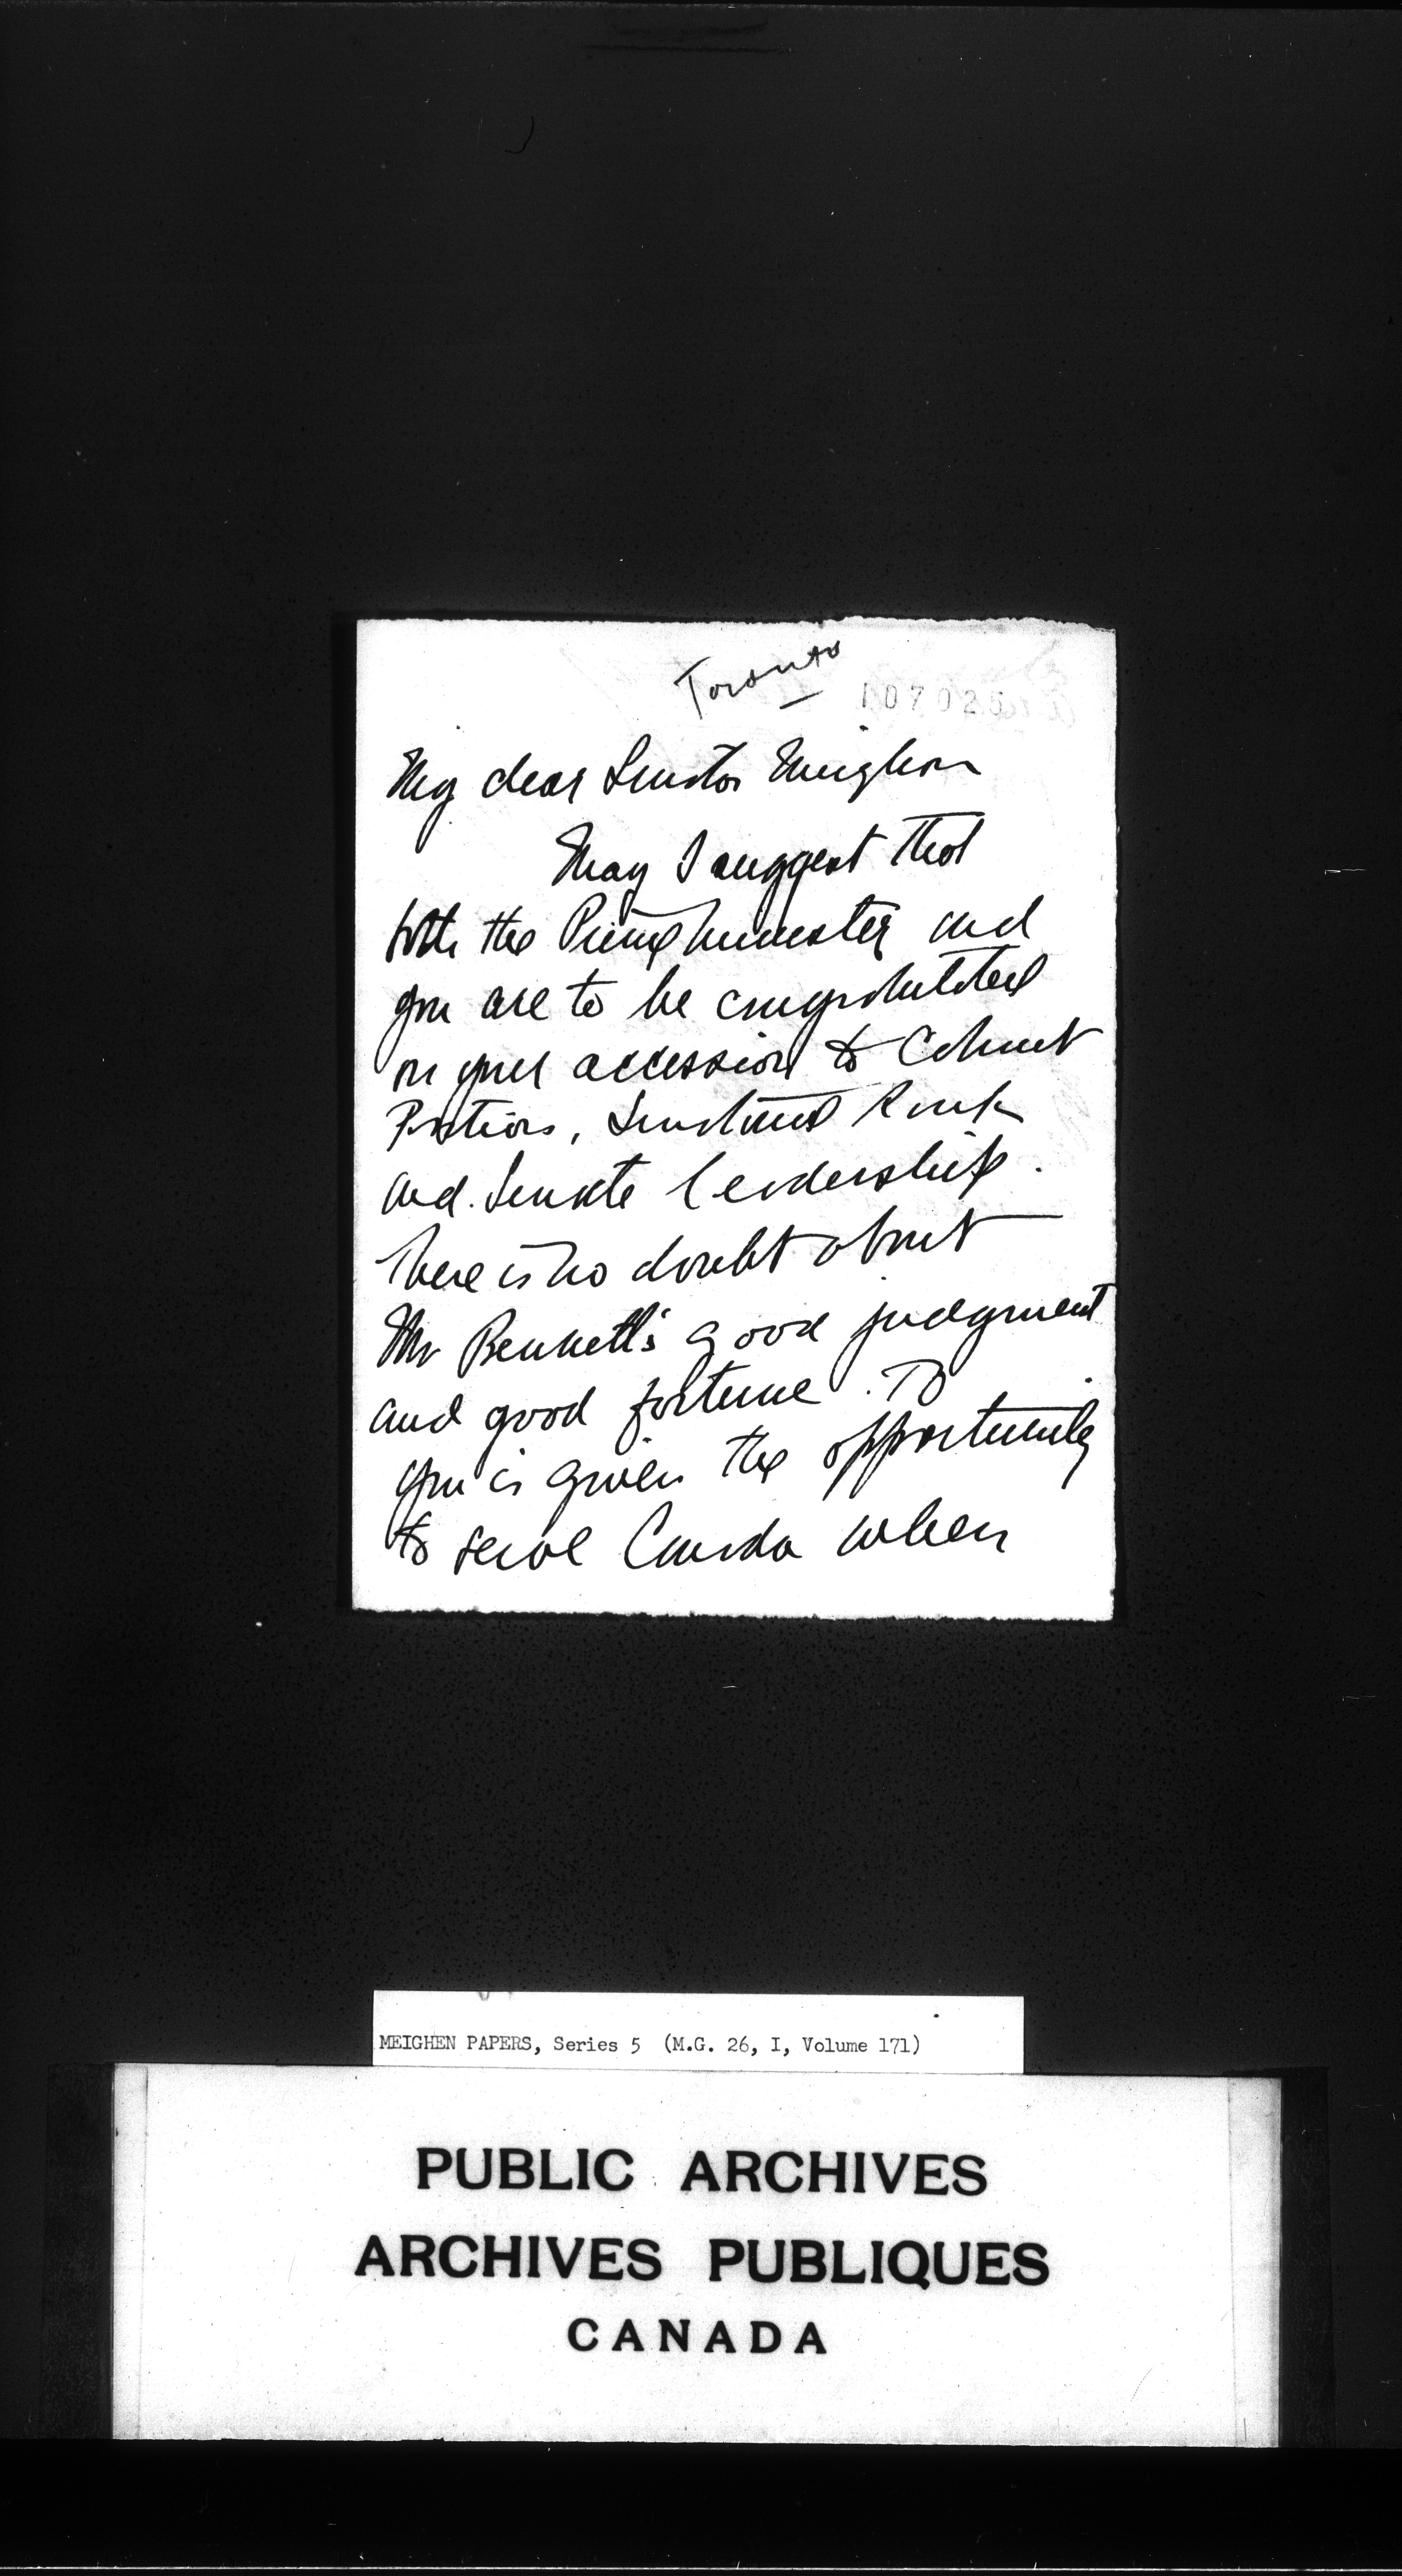 Toronto
107025
My dear Senator Meighen
May I suggest that
both the Prime Minister and
you are to be congratulated
on your accession to Cabinet
Position, Senatorial Rank
and Senate leadership.
There is no doubt about
Mr Bennett's good judgment
and good fortune. To
you is given the opportunity
to serve Canada when
MEIGHEN PAPERS, Series 5 (M.G. 26, I, Volume 171)
PUBLIC ARCHIVES
ARCHIVES PUBLIQUES
CANADA